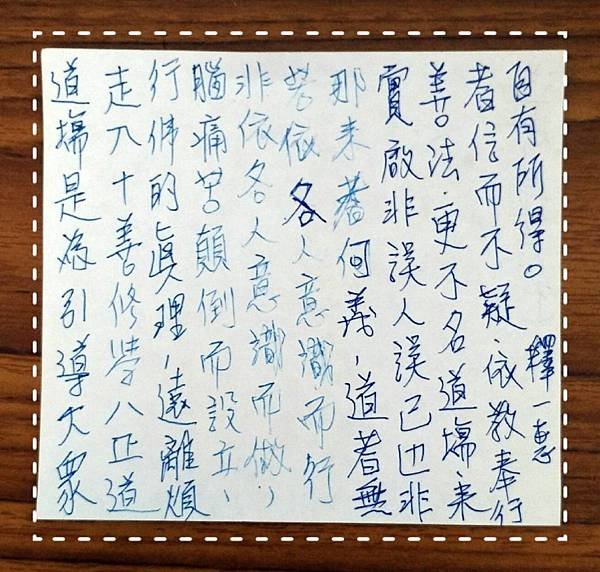 道場是為引導大眾
走入十善修學八正道
行佛的眞理，遠離煩
腦痛苦顛倒而設立、
非依各人意識而做；
若依各人意識而行
那来著何義，道者無
實啟非誤人誤己也非
善法．更不名道場．来
者信而不疑．依教奉行
自有所得。
釋一惠